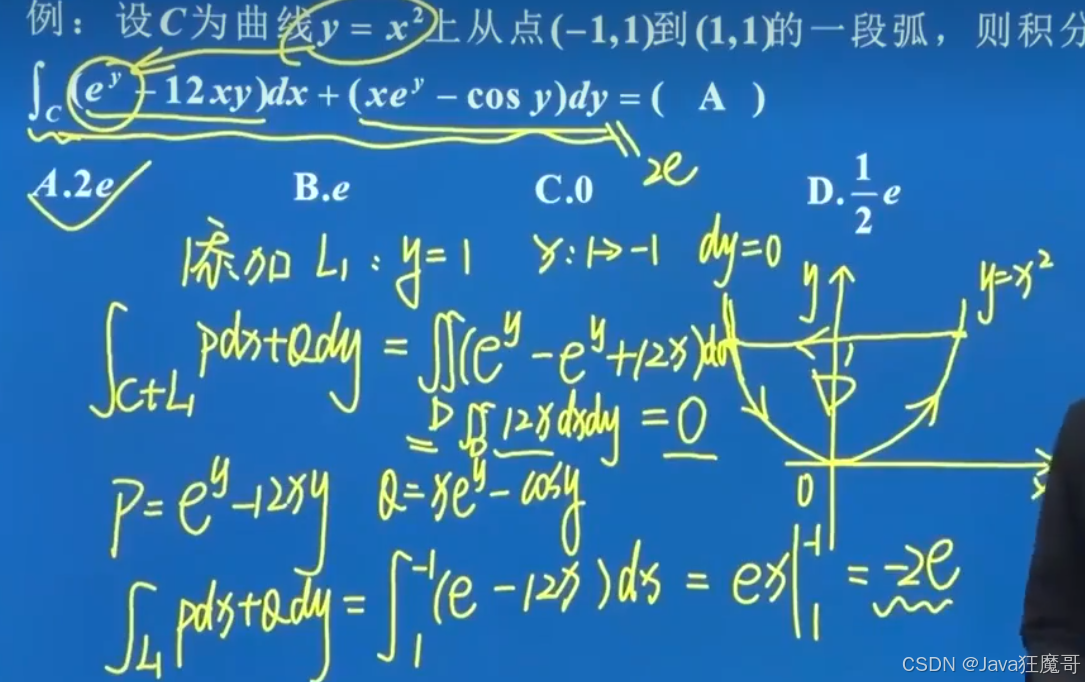 例：设C为曲线y = x²上从点(-1,1)到(1,1)的一段弧，则积分
∫_C (e^y - 12xy)dx + (xe^y - cos y)dy = ( A )
2e
A.2e B.e C.0 D.1/2 e
添加 L₁ : y=1 x:1→-1 dy=0
y y=x²
∫_{C+L₁} Pdx+Qdy = ∬_D (e^y - e^y + 12x)dσ
1
D
= ∬_D 12x dxdy = 0
P = e^y - 12xy Q = xe^y - cosy
0 x
∫_{L₁} Pdx+Qdy = ∫_1^{-1} (e - 12x)dx = ex|_1^{-1} = -2e
CSDN @Java狂魔哥